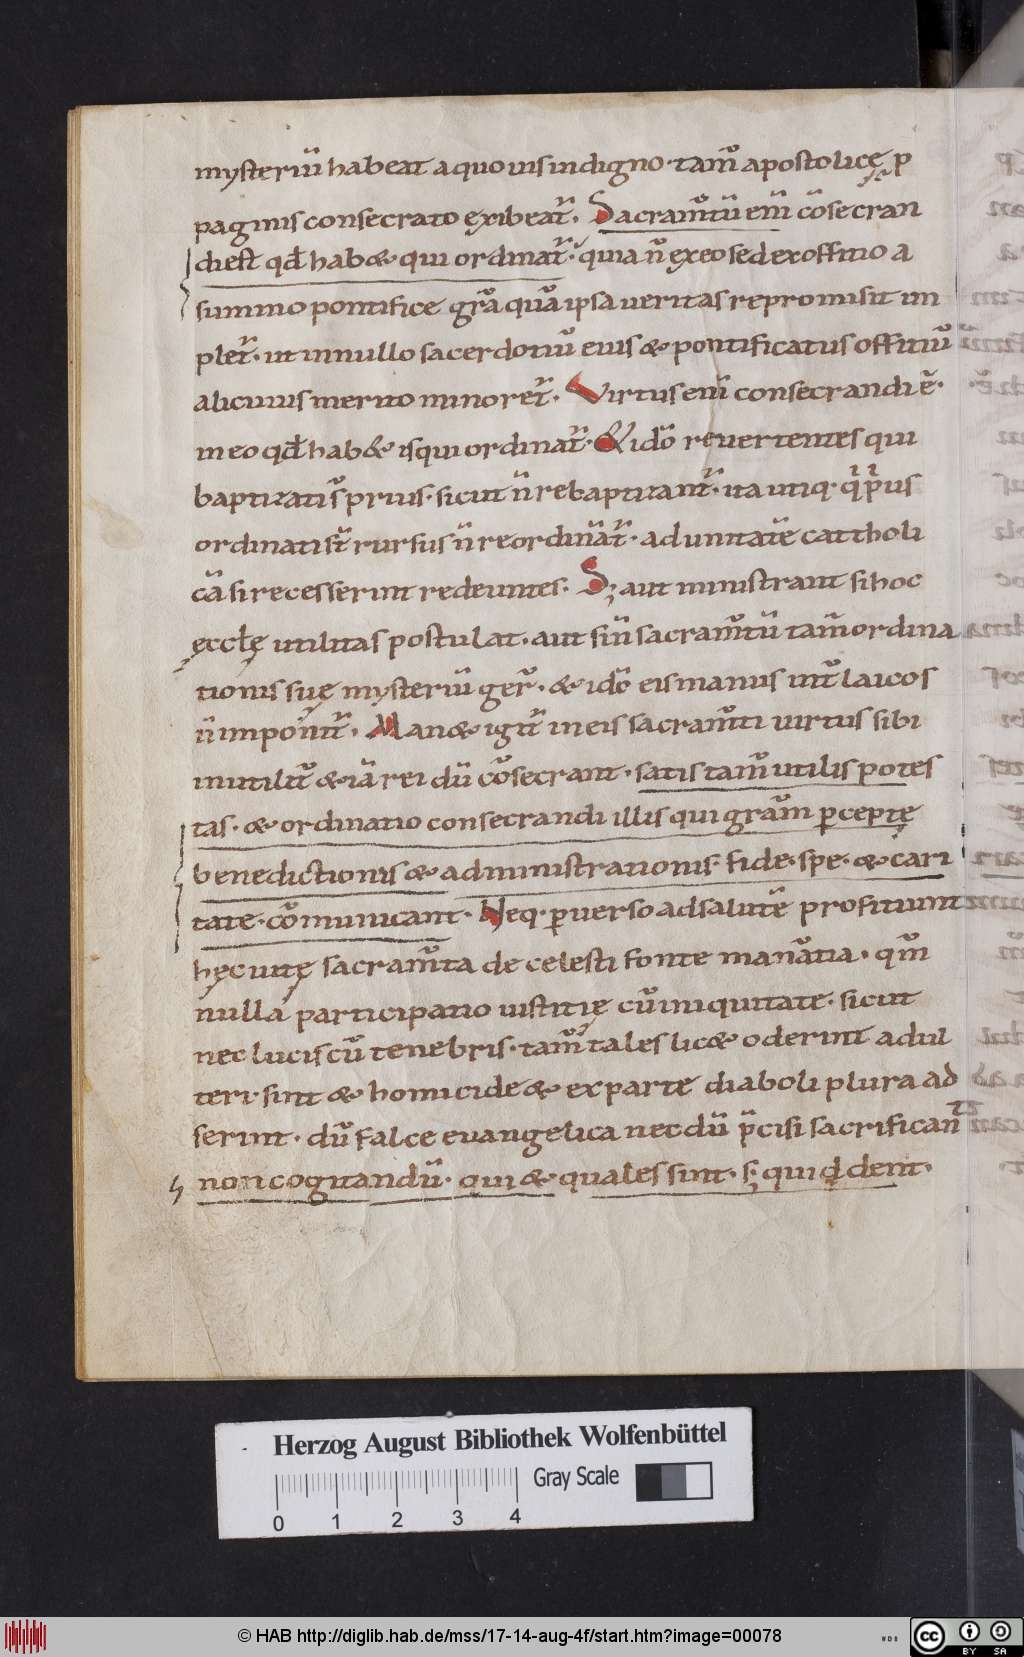 mysteriū habeat a quouis indigno· tam̄ apostolicę p
paginis consecrato exibeat᷑. Sacram̄tū eni᷑ c̄osecran
di est qd̄ hab& qui ordinat᷑· quia n̄ ex eo sed ex offitio a
summo pontifice grā quā ipsa ueritas repromisit im
plet᷑· ut in nullo sacerdotiū eius & pontificatus offitiū
alicuius merito minoret᷑. Virtus eni᷑ consecrandi ē·
in eo qd̄ hab& is qui ordinat᷑· & idō reuertentes qui
baptizati s̄ prius· sicut n̄ rebaptizant᷑· ita utiq· q̄ p̄us
ordinati st̄ rursus n̄ reordinant᷑· ad unitatē cattholi
cā si recesserint redeuntes. Sꝫ aut ministrant si hoc
ęcclę utilitas postulat· aut sin̄ sacram̄tū tam̄ ordina
tionis suę mysteriū ger̄· & idō eis manus int̄ laicos
n̄ imponit᷑. Man& igit᷑ in eis sacram̄ti uirtus sibi
inutilit̄ & iā rei dū c̄osecrant· satis tam̄ utilis potes
tas· & ordinatio consecrandi illis qui gram̄ p̱ceptę
benedictionis & administrationis· fide· spe· & cari
tate· c̄omunicant. Neq· p̱uerso ad salutē profitiunt
hęc uitę sacram̄ta de celesti fonte manātia· qm̄
nulla participatio iustitię cū iniquitate· sicut
nec lucis cū tenebris· tam̄ tales lic& oderint adul
teri· sint & homicide & ex parte diaboli plura ad
serint· dū falce euangelica necdū p̄cisi sacrificant
non cogitandū· qui & quales sint· sꝫ qui͛d dent.
Herzog August Bibliothek Wolfenbüttel
Gray Scale
0 1 2 3 4
© HAB http://diglib.hab.de/mss/17-14-aug-4f/start.htm?image=00078
WDB
cc BY SA